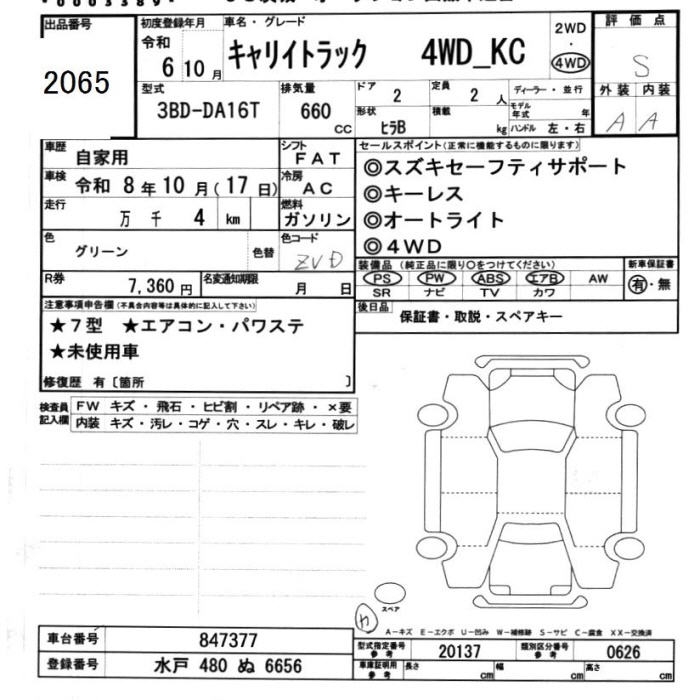 出品番号 2065
初度登録年月 令和 6年 10月
車名・グレード キャリイトラック 4WD_KC
2WD ・ 4WD
評価点 S
外装 A 内装 A
型式 3BD-DA16T
排気量 660 CC
ドア 2
定員 2 人
ディーラー・並行
モデル年式 年
形状 ヒラB
積載 kg
ハンドル 左・右
車歴 自家用
シフト FAT
車検 令和 8年10月(17日)
冷房 AC
走行 万 千 4 km
燃料 ガソリン
色 グリーン 色替
色コード ZVD
R券 7,360円
名変通知期限 月 日
セールスポイント(正常に機能するものに限ります)
◎スズキセーフティサポート
◎キーレス
◎オートライト
◎4WD
装備品(純正品に限り〇をつけてください)
PS PW ABS エアB AW
SR ナビ TV カワ
新車保証書 有・無
後日品 保証書・取説・スペアキー
注意事項申告欄(不具合内容等は具体的に記入して下さい)
★7型 ★エアコン・パワステ
★未使用車
修復歴 有〔箇所 〕
検査員記入欄
FW キズ・飛石・ヒビ割・リペア跡・×要
内装 キズ・汚レ・コゲ・穴・スレ・キレ・破レ
スペア
A-キズ E-エクボ U-凹み W-補修跡 S-サビ C-腐食 XX-交換済
車台番号 847377
登録番号 水戸 480 ぬ 6656
型式指定番号 参考 20137
類別区分番号 参考 0626
車庫証明用 参考 長さ cm 幅 cm 高さ cm